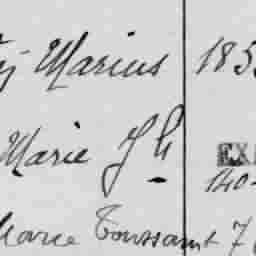 Marius 185
Marie J h EX
140-
Marie Toussaint 7